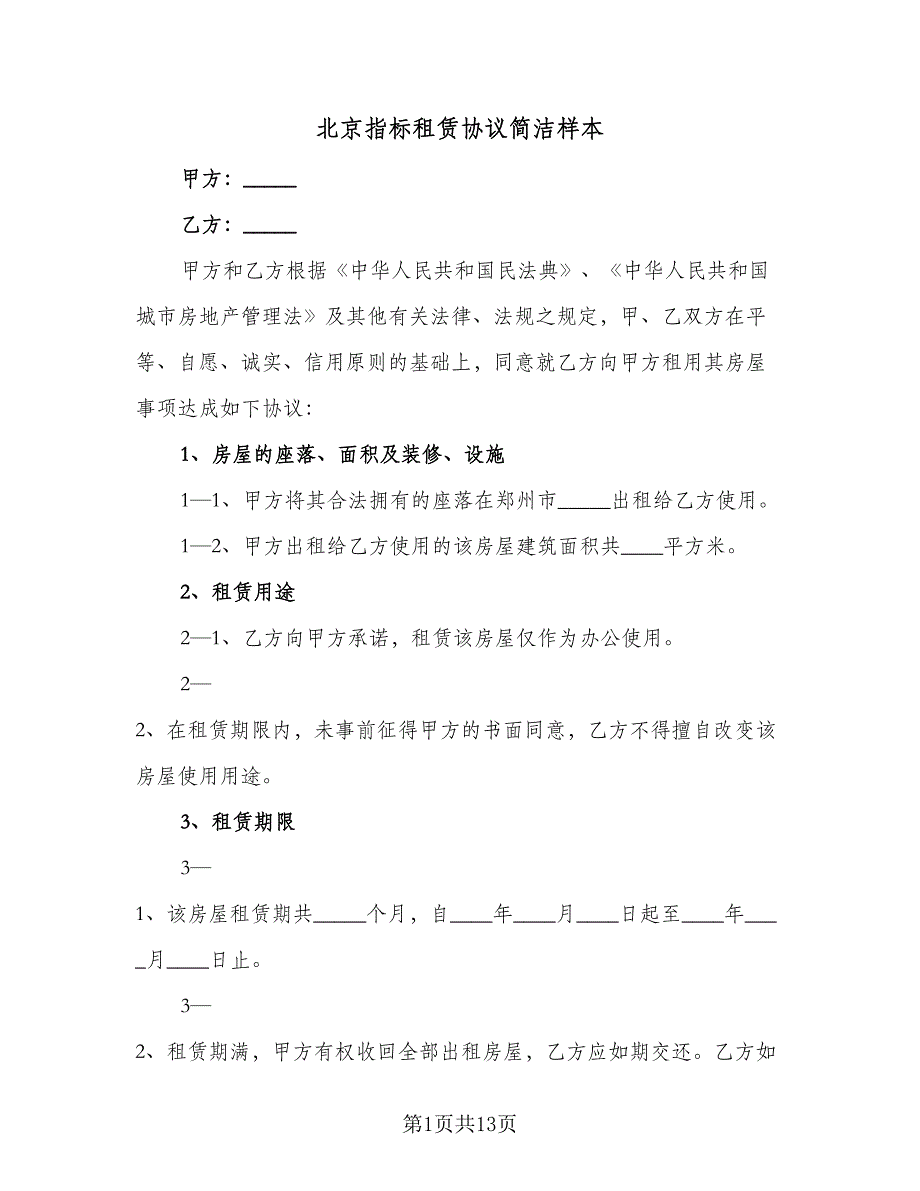 北京指标租赁协议简洁样本
甲方：_____
乙方：_____
甲方和乙方根据《中华人民共和国民法典》、《中华人民共和国
城市房地产管理法》及其他有关法律、法规之规定，甲、乙双方在平
等、自愿、诚实、信用原则的基础上，同意就乙方向甲方租用其房屋
事项达成如下协议：
1、房屋的座落、面积及装修、设施
1—1、甲方将其合法拥有的座落在郑州市_____出租给乙方使用。
1—2、甲方出租给乙方使用的该房屋建筑面积共____平方米。
2、租赁用途
2—1、乙方向甲方承诺，租赁该房屋仅作为办公使用。
2—
2、在租赁期限内，未事前征得甲方的书面同意，乙方不得擅自改变该
房屋使用用途。
3、租赁期限
3—
1、该房屋租赁期共_____个月，自____年____月____日起至____年___
_月____日止。
3—
2、租赁期满，甲方有权收回全部出租房屋，乙方应如期交还。乙方如
第1页共13页